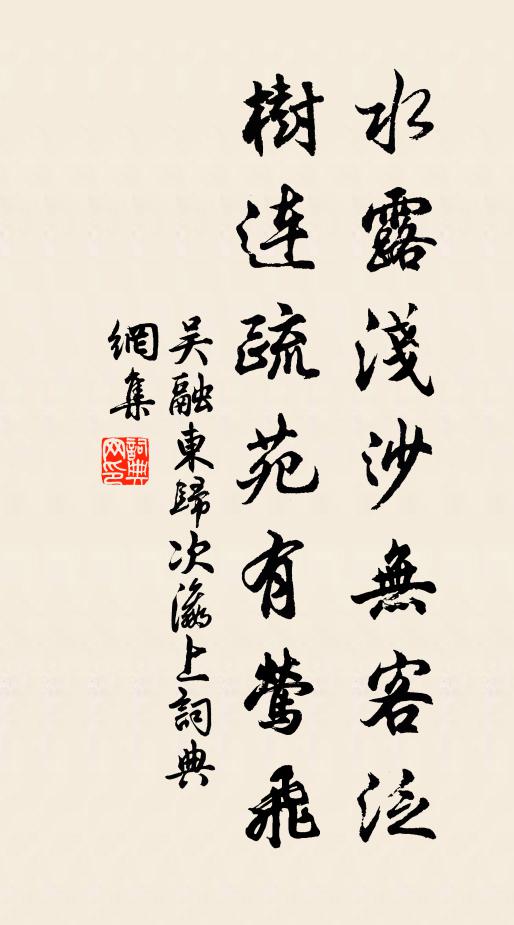 水露淺沙無客泛
樹連疏苑有鶯飛
吳融東歸次瀛上詞典
網集
詞典
网印